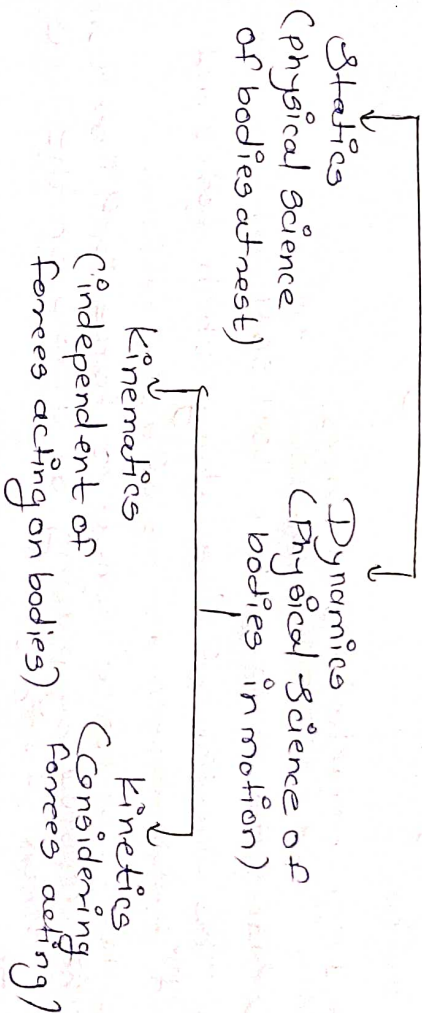 Statics
(physical science
of bodies at rest)
Dynamics
(Physical science of
bodies in motion)
Kinematics
(independent of
forces acting on bodies)
Kinetics
(Considering
forces acting)